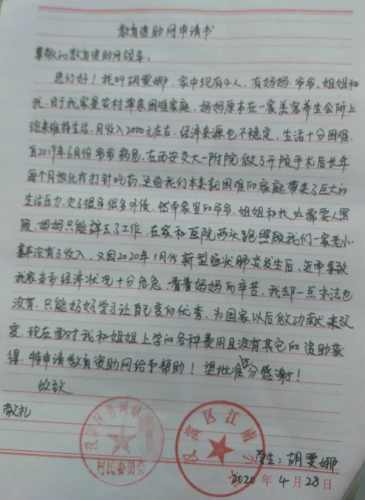 教育资助网申请书
尊敬的教育资助网领导:
您们好!我叫胡雯娜,家中现有4人,有妈妈、爷爷、姐姐和
我,由于我家是农村单亲困难家庭,妈妈原本在一家美容养生会所上
班来维持生活,月收入2000元左右,经济来源也不稳定,生活十分困难,
在2019年6月份爷爷病危,在西安交大一附院做了开颅手术后长年
每个月放化疗打针吃药,这给我们本来就困难的家庭带来了巨大的
生活压力,欠了很多很多外债,然而家里的爷爷、姐姐和我也需要人照
顾,妈妈只能辞去了工作,在家和医院两头跑照顾我们一家老小
基本没有了收入,又因2020年1月份新型冠状肺炎发生后,近而导致
我家当前经济状况十分危急,看着妈妈的辛苦,我却一点办法也
没有,只能好好学习让自己变的优秀,为国家以后做功献来改
变,现在面对我和姐姐上学的各种费用且没有其它的资助获
得,特申请教育资助网给予帮助!望批准十分感谢!
此致
敬礼
村民委员会
汉滨区江南
学生:胡雯娜
2020年4月28日